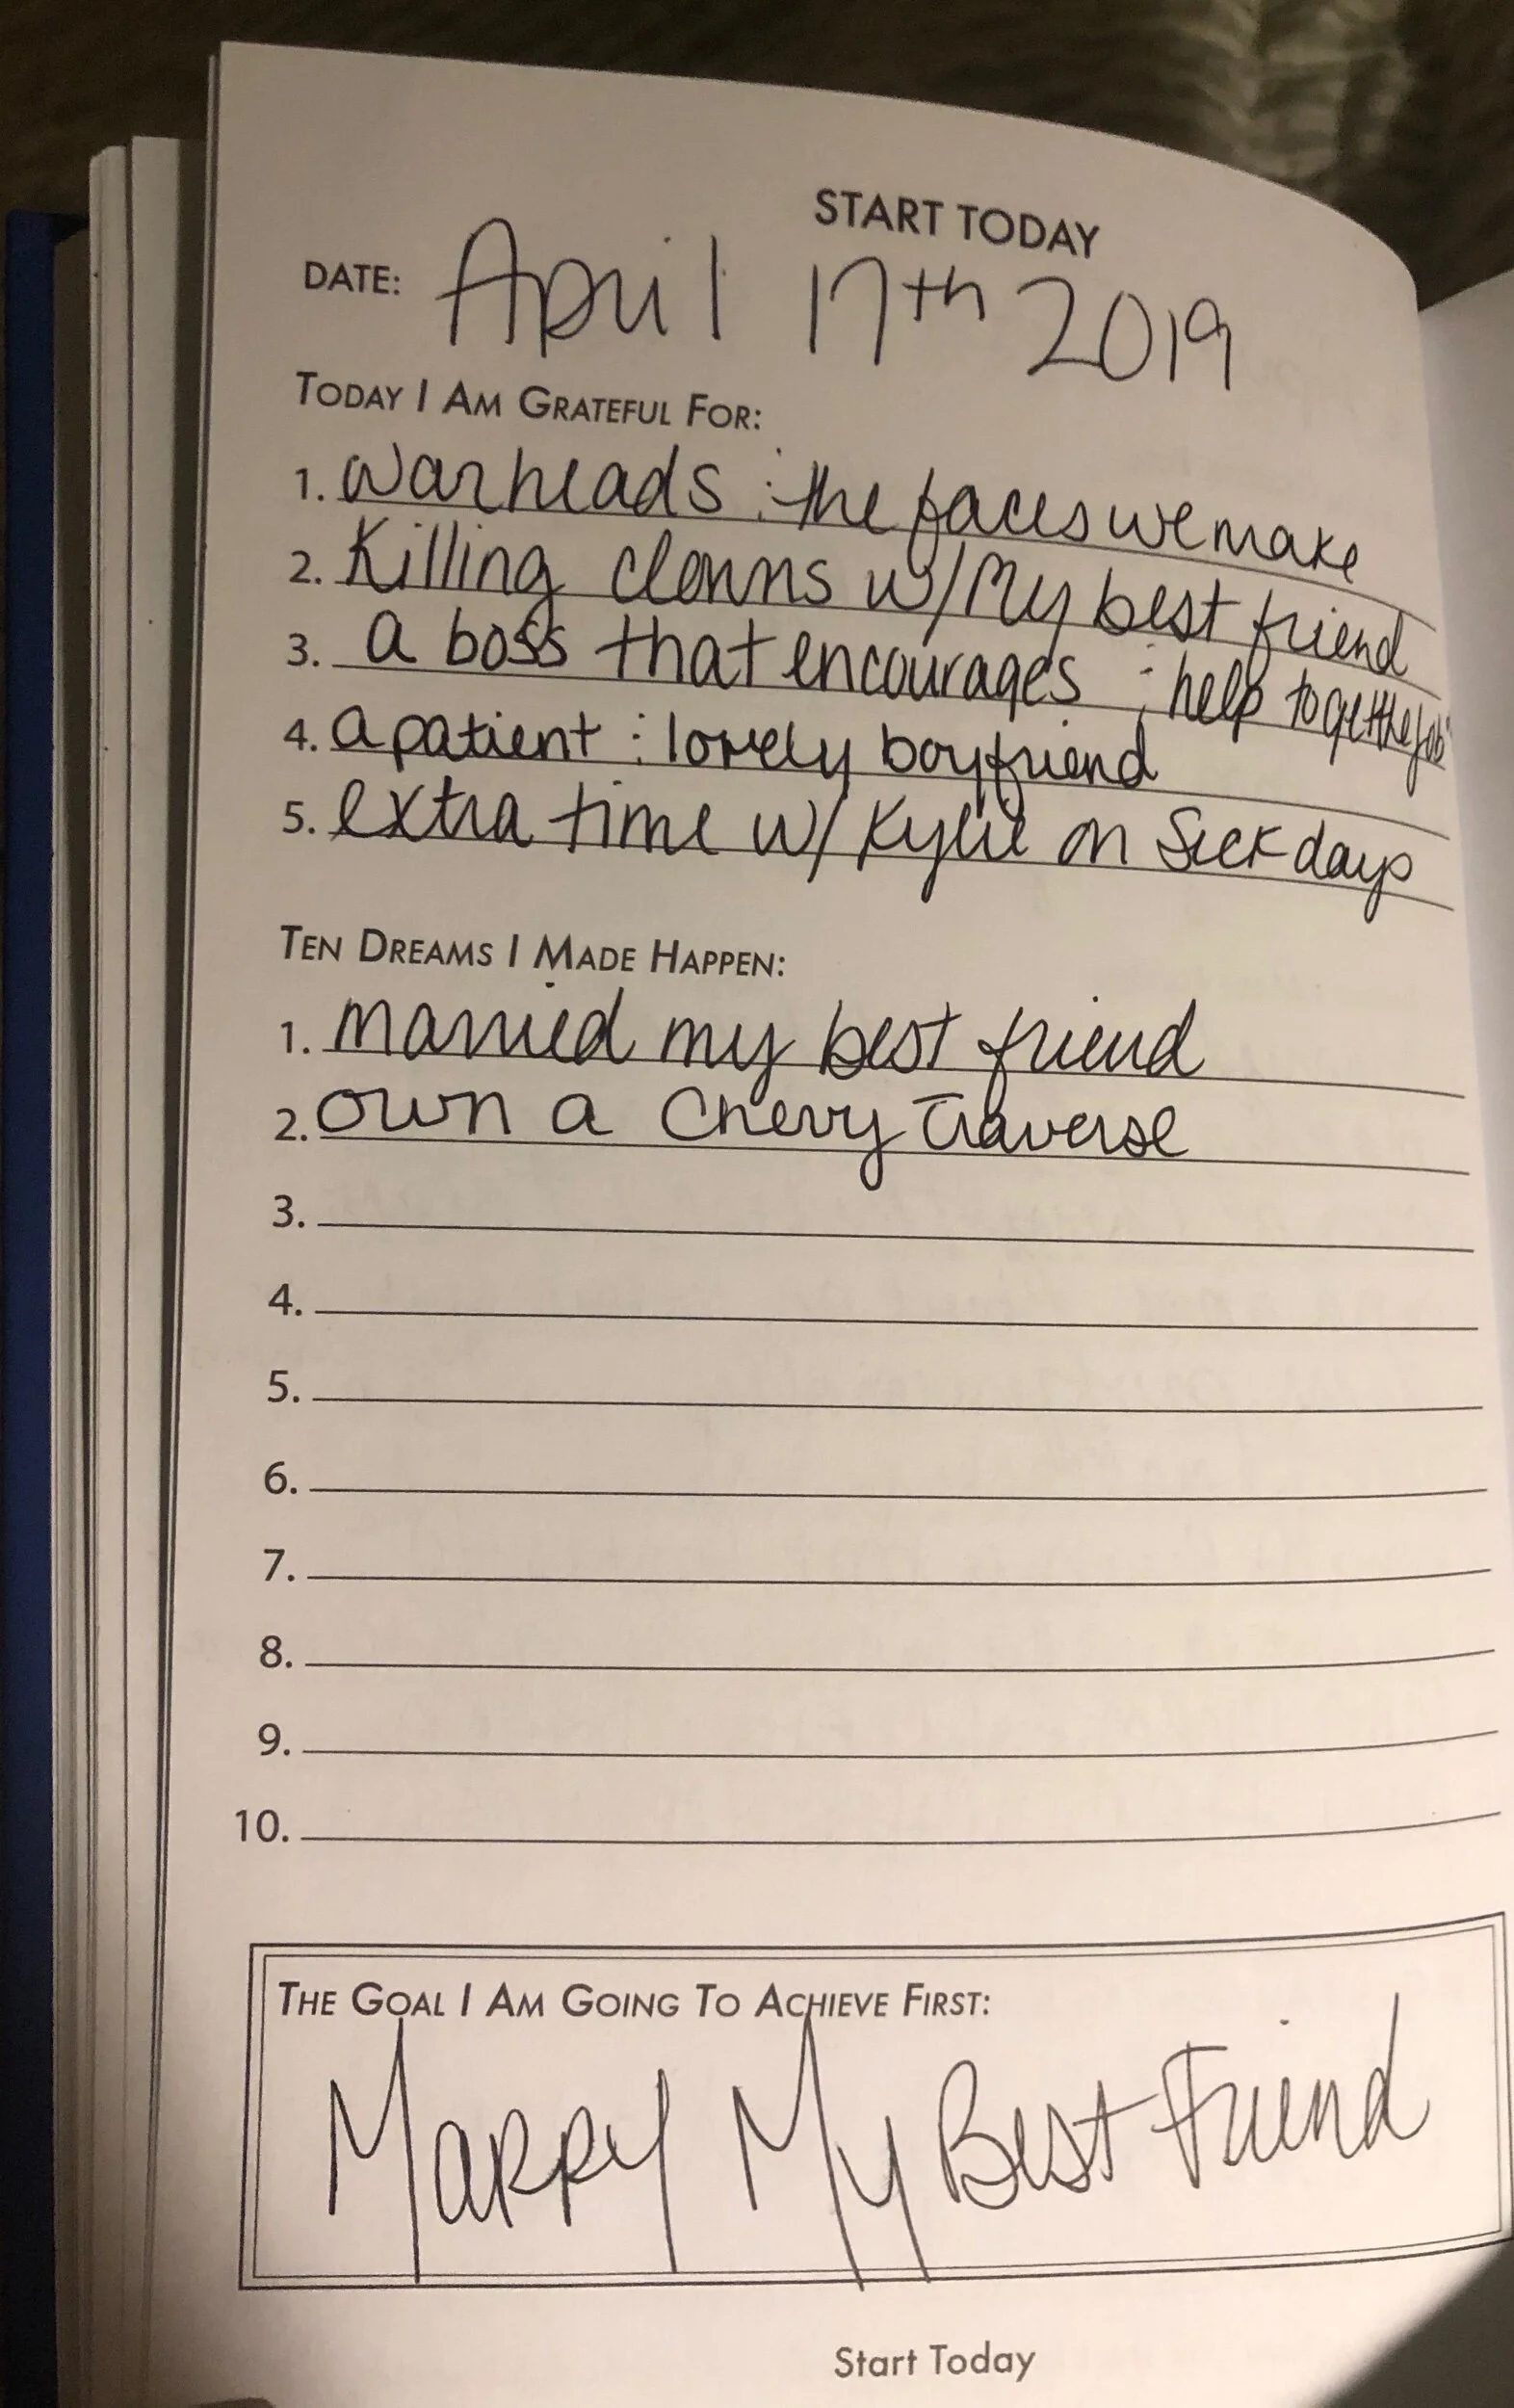 START TODAY
DATE: April 17th 2019
TODAY I AM GRATEFUL FOR:
1. warheads : the faces we make
2. Killing clowns w/ My best friend
3. a boss that encourages : help to get the job
4. a patient : lovely boyfriend
5. extra time w/ Kylie on Sick days
TEN DREAMS I MADE HAPPEN:
1. married my best friend
2. own a Chevy Traverse
3.
4.
5.
6.
7.
8.
9.
10.
THE GOAL I AM GOING TO ACHIEVE FIRST:
MARRY My Best Friend
Start Today